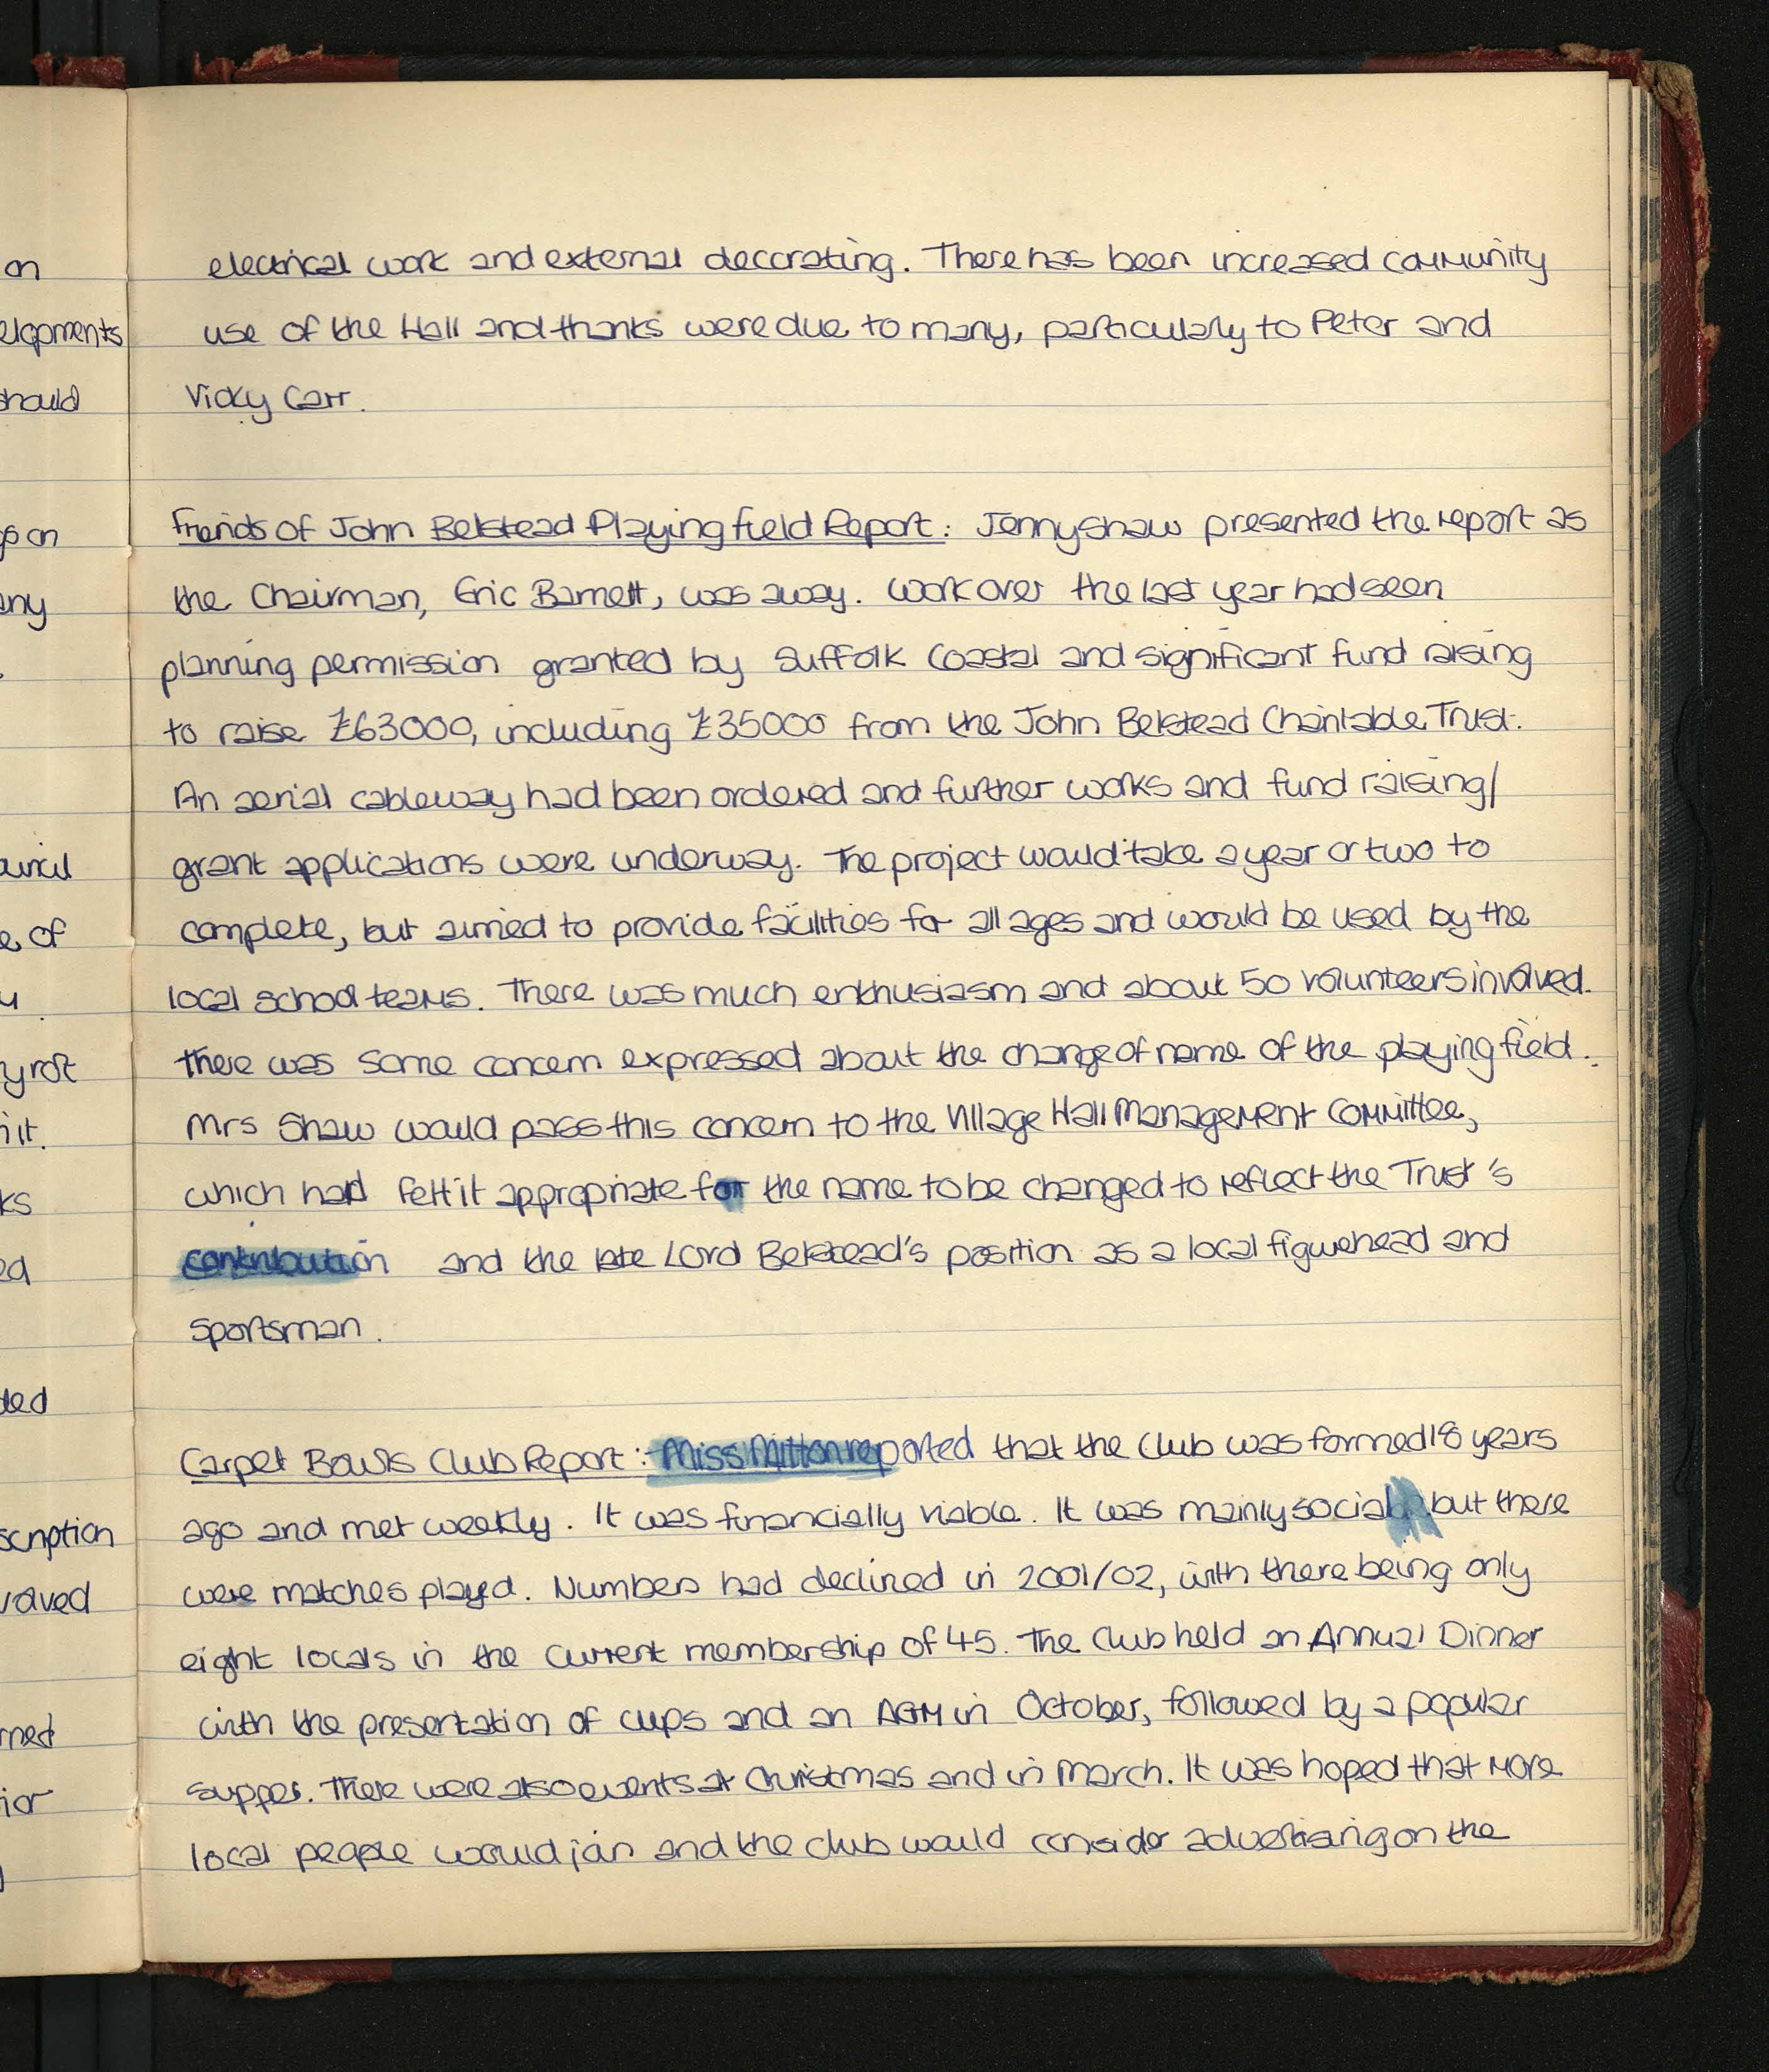 on
elopments
should
gs on
any
ouncil
e of
y rot
it.
ks
ed
ded
scription
volved
med
ior
electrical work and external decorating. There has been increased community
use of the Hall and thanks were due to many, particularly to Peter and
Vicky Carr.
Friends of John Belstead Playing field Report: Jenny Shaw presented the report as
the Chairman, Eric Barnett, was away. Work over the last year had seen
planning permission granted by Suffolk Coastal and significant fund raising
to raise £63000, including £35000 from the John Belstead Charitable Trust.
An aerial cableway had been ordered and further works and fund raising/
grant applications were underway. The project would take a year or two to
complete, but aimed to provide facilities for all ages and would be used by the
local school teams. There was much enthusiasm and about 50 volunteers involved.
There was some concern expressed about the change of name of the playing field.
Mrs Shaw would pass this concern to the Village Hall Management Committee,
which had felt it appropriate for the name to be changed to reflect the Trust's
contribution and the late Lord Belstead's position as a local figurehead and
sportsman.
Carpet Bowls Club Report: Miss Mitton reported that the Club was formed 18 years
ago and met weekly. It was financially viable. It was mainly social, but there
were matches played. Numbers had declined in 2001/02, with there being only
eight locals in the current membership of 45. The Club held an Annual Dinner
with the presentation of cups and an AGM in October, followed by a popular
supper. There were also events at Christmas and in March. It was hoped that more
local people would join and the club would consider advertising on the